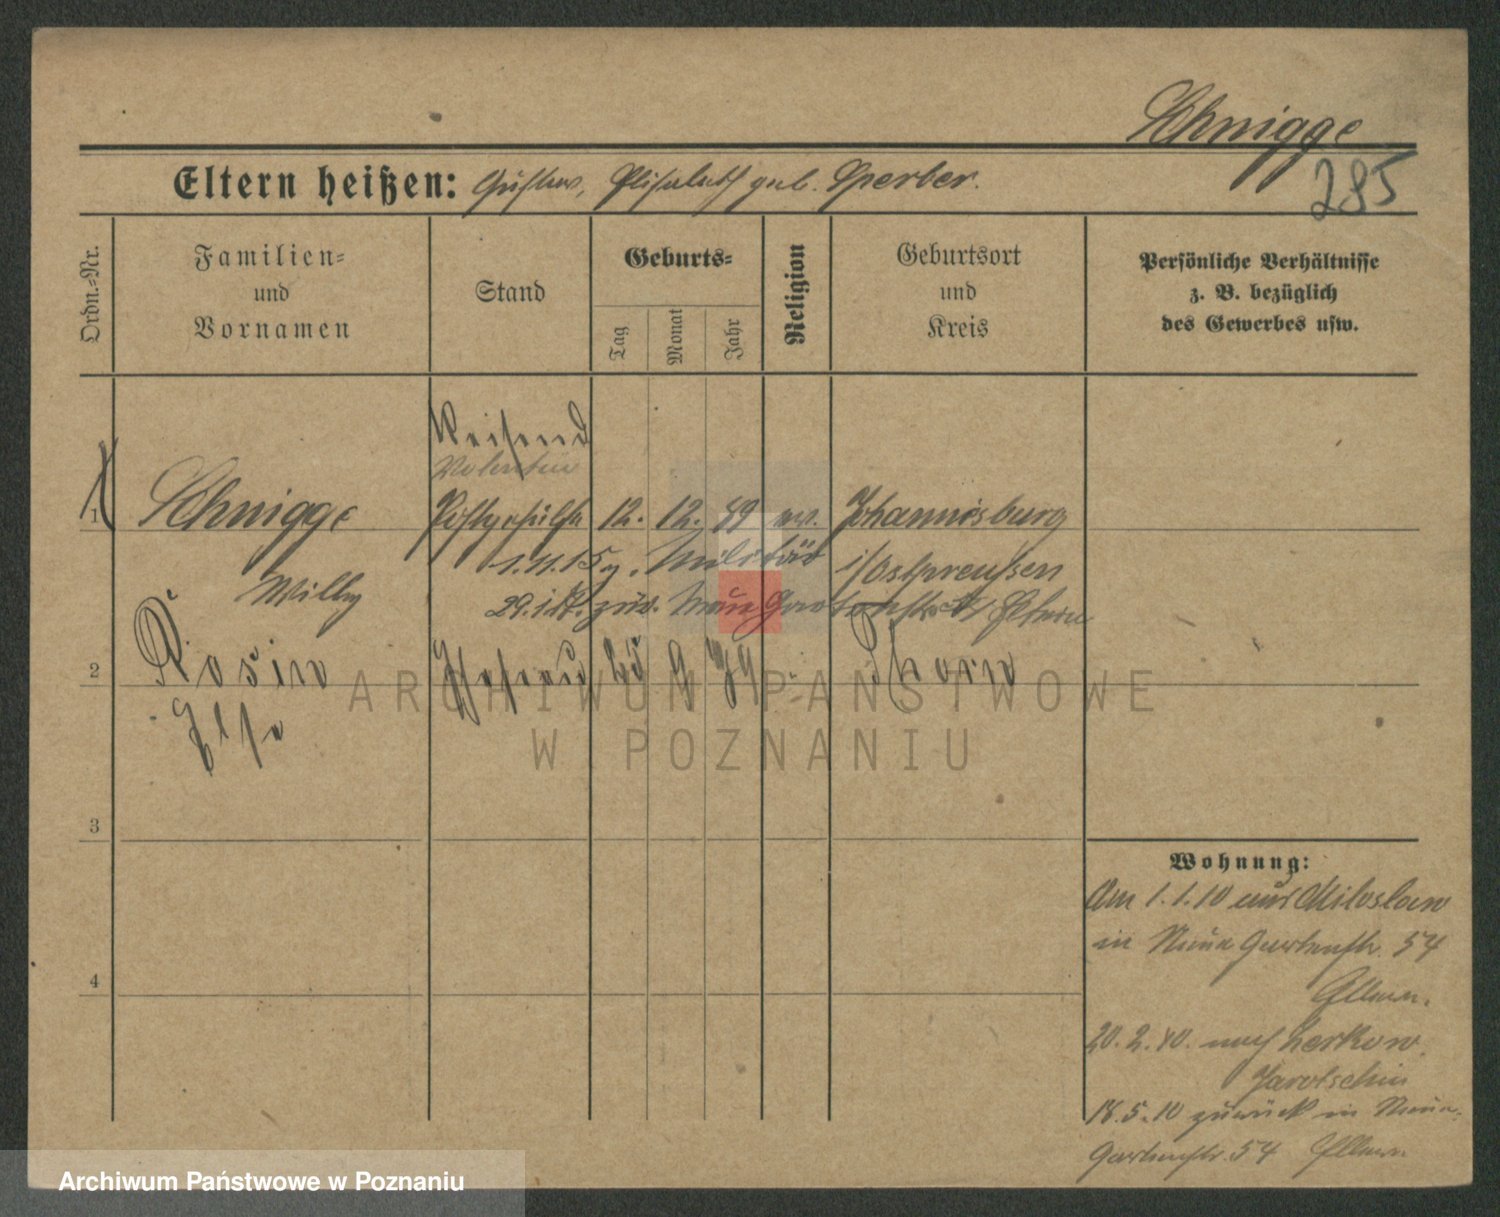 Schnigge
285
Eltern heißen: Gustav, Elisabeth geb. Sperber.
Ordn.-Nr.
Familien-
und
Vornamen
Stand
Geburts-
Tag
Monat
Jahr
Religion
Geburtsort
und
Kreis
Persönliche Verhältnisse
z. B. bezüglich
des Gewerbes usw.
Reisend
1 Schnigge Postgehülfe 12. 12. 89 ev. Johannisburg
1.11.15 z. Militär i/Ostpreußen
Willy
29. zur. Neue Gartenstr. Eltern
2 Rosin Ehefrau 25 9 Thorn
Else
3
4
Wohnung:
Am 1.1.10 aus Miloslaw
in Neue Gartenstr. 54
Eltern.
20.2.10. nach Zerkow
Jarotschin
18.5.10 zurück in Neue
Gartenstr. 54 Eltern
ARCHIWUM PAŃSTWOWE
W POZNANIU
Archiwum Państwowe w Poznaniu